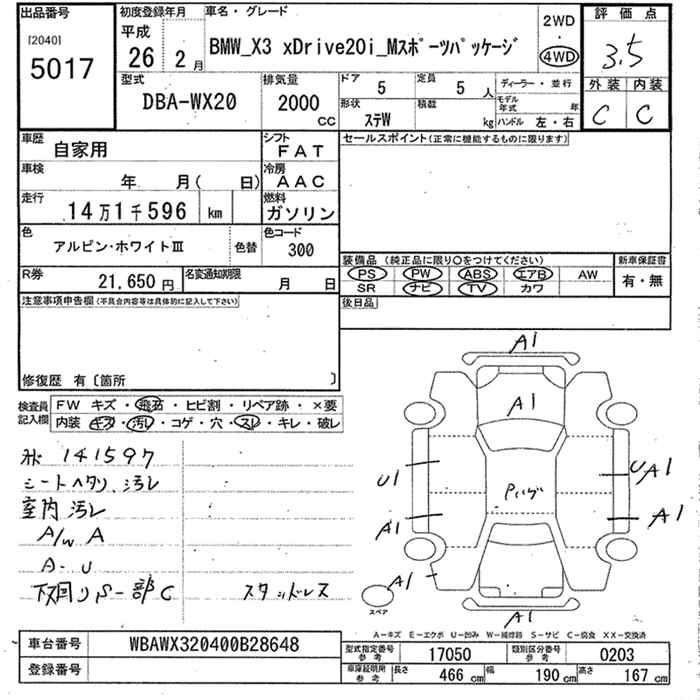 出品番号
[2040]
5017
初度登録年月
平成
26 2 月
車名・グレード
BMW_X3 xDrive20i_Mスポーツパッケージ
2WD
・
4WD
評価点
3.5
型式
DBA-WX20
排気量
2000
CC
ドア
5
定員
5 人
形状
ステW
積載
kg
ディーラー・並行
モデル年式 年
ハンドル 左・右
外装 内装
C C
車歴
自家用
シフト
FAT
セールスポイント(正常に機能するものに限ります)
車検
年 月( 日)
冷房
AAC
走行
14万1千596 km
燃料
ガソリン
色
アルピン・ホワイトⅢ
色替
色コード
300
装備品 (純正品に限り○をつけてください)
新車保証書
PS PW ABS エアB AW
有・無
SR ナビ TV カワ
R券
21,650 円
名変通知期限
月 日
後日品
注意事項申告欄(不具合内容等は具体的に記入して下さい)
修復歴 有〔箇所 〕
検査員記入欄
FW キズ・飛石・ヒビ割・リペア跡・×要
内装 キズ・汚レ・コゲ・穴・スレ・キレ・破レ
141597
シートヘタリ、汚レ
室内汚レ
A/W A
A-U
下回りS-部C
スタッドレス
A1
A1
U1
UA1
A1
A1
A1
A1
スペア
A-キズ E-エクボ U-凹み W-補修跡 S-サビ C-腐食 XX-交換済
車台番号
WBAWX320400B28648
登録番号
型式指定番号 参考
17050
類別区分番号 参考
0203
車庫証明用 参考
長さ
466 cm
幅
190 cm
高さ
167 cm